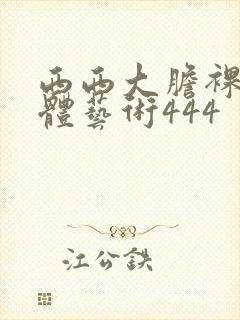 西西大膽裸
體藝術444
江公鉄